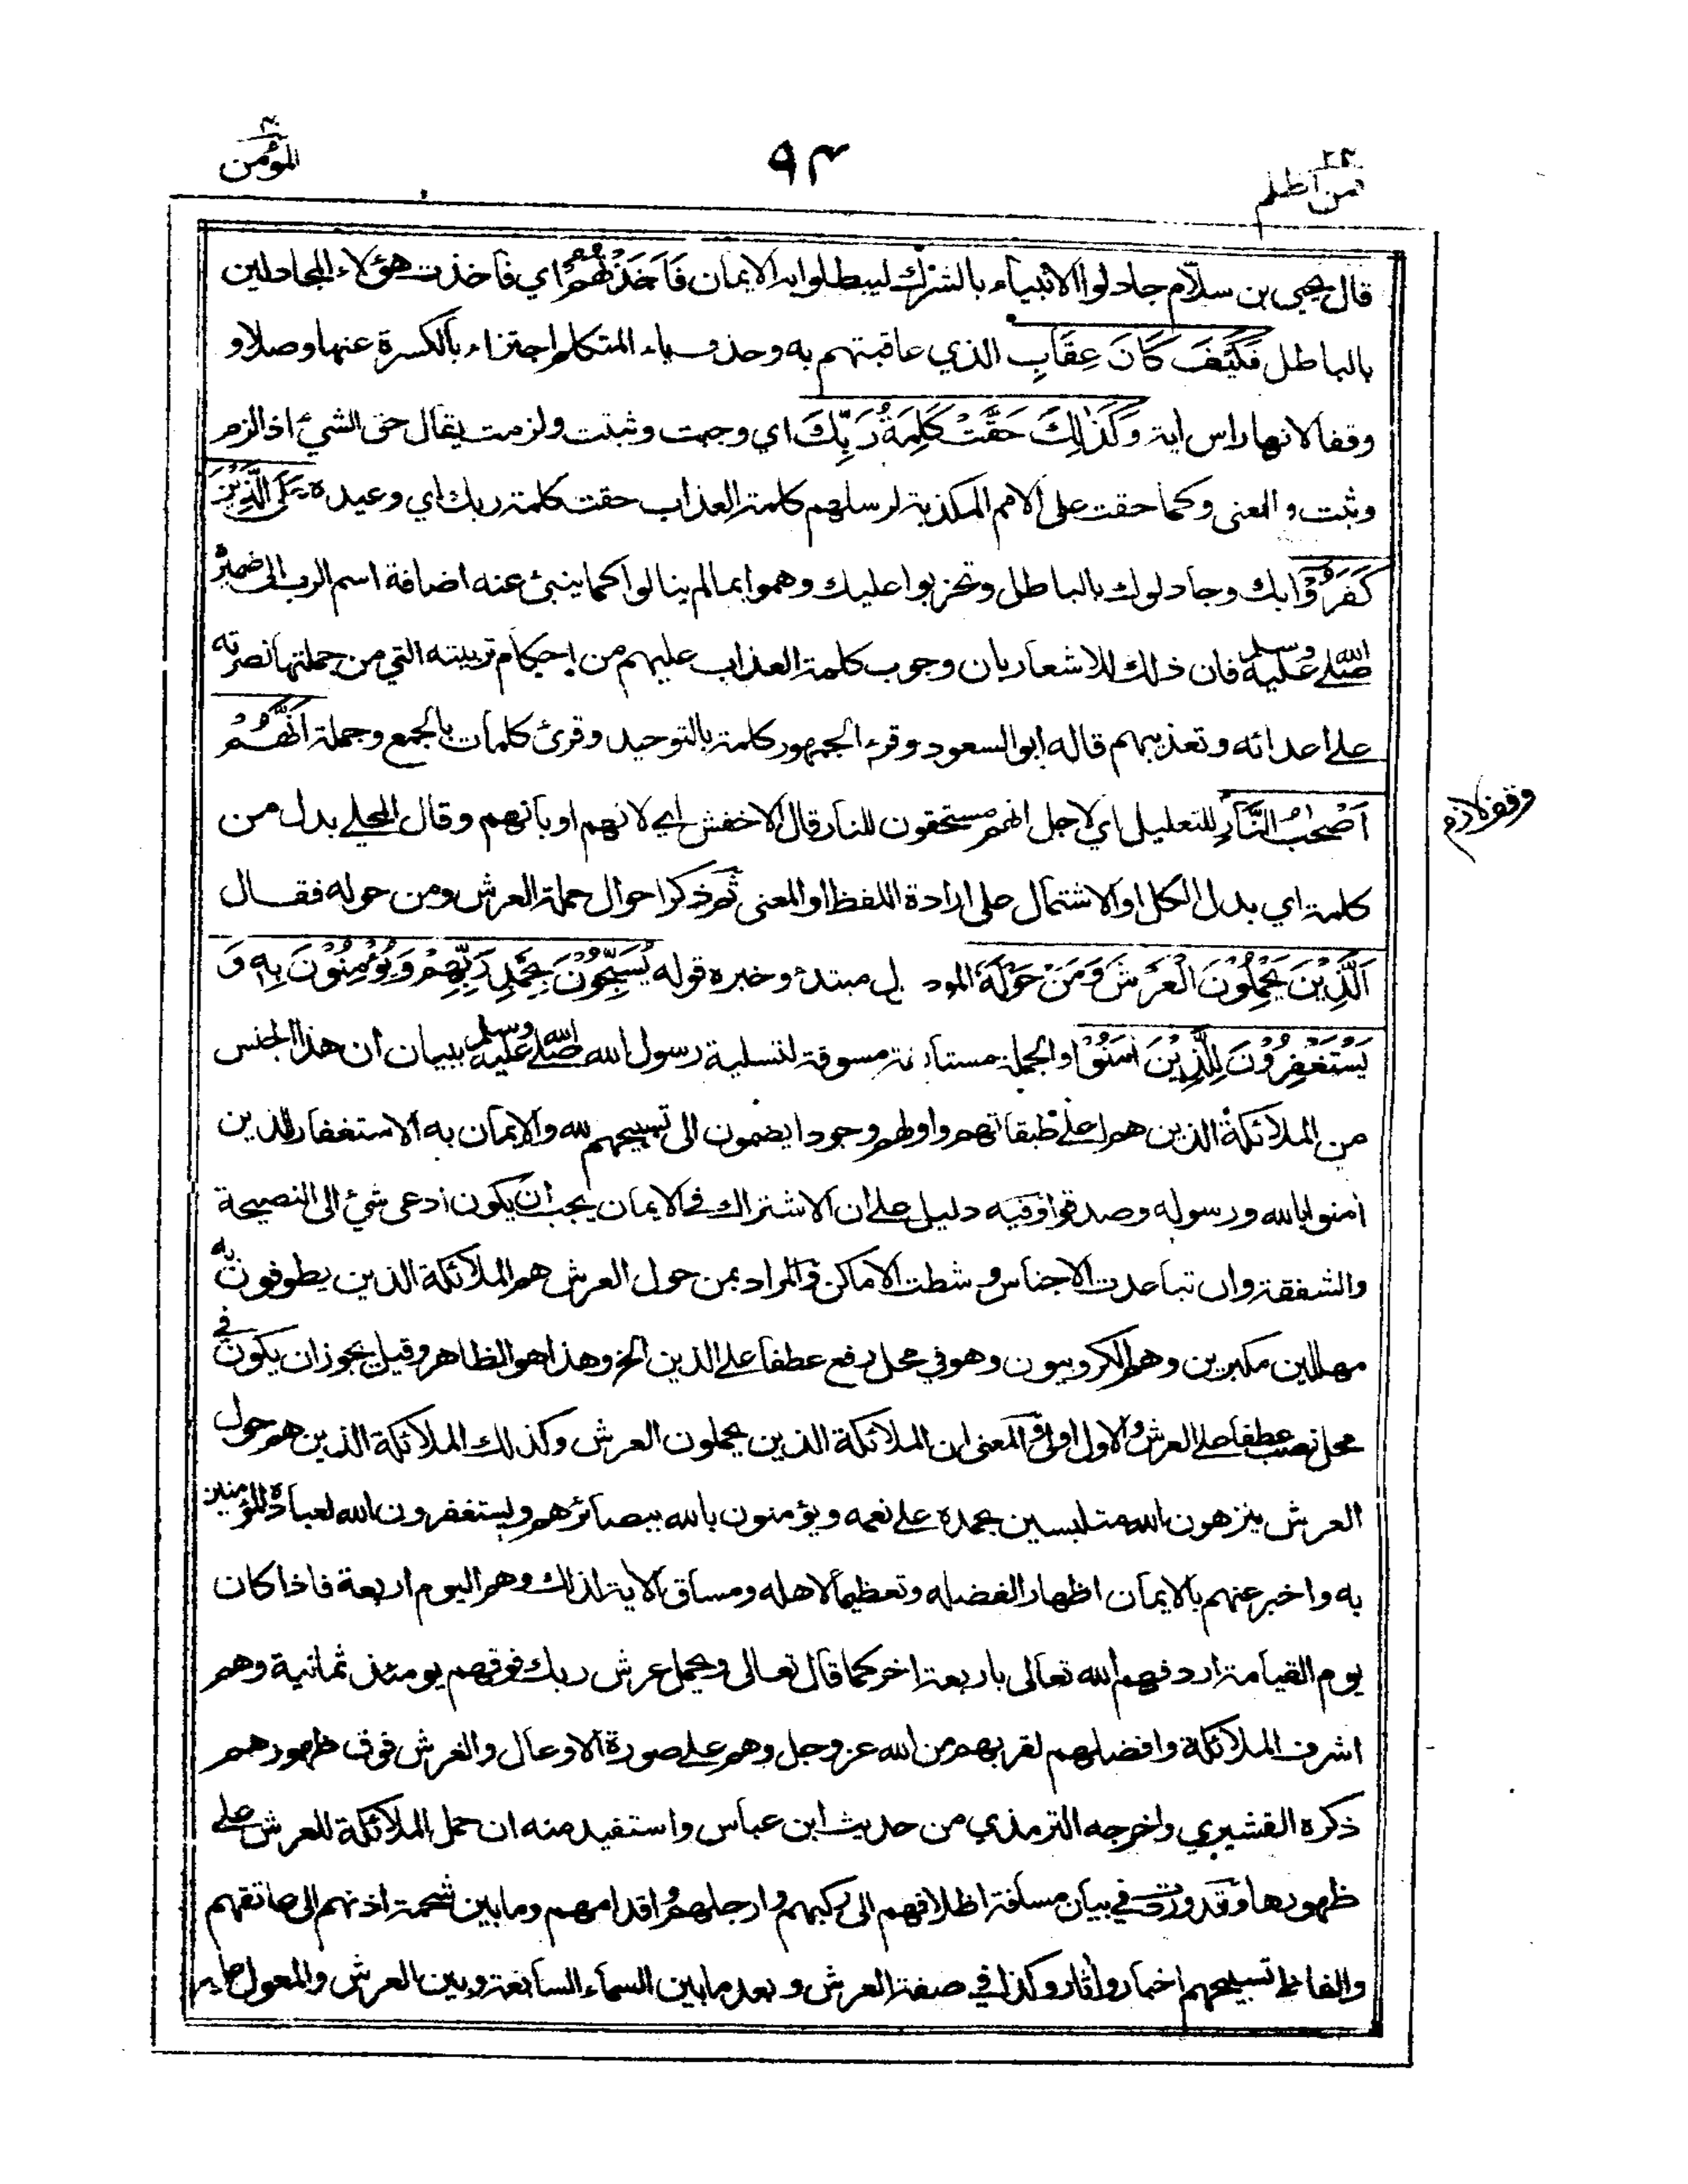 فمن اظلم ٢٤
٩٤
المؤمن ٤٠
قال يحيى بن سلام جادلوا الانبياء بالشرك ليبطلوا به الايمان فَاَخَذْتُهُمْ اي فاخذت هؤلاء المجادلين
بالباطل فَكَيْفَ كَانَ عِقَابِ الذي عاقبتهم به وحذف ياء المتكلم اجتزاء بالكسرة عنها وصلا و
وقفا لانها راس اية وَكَذٰلِكَ حَقَّتْ كَلِمَةُ رَبِّكَ اي وجبت وثبتت ولزمت يقال حق الشيء اذا لزم
وثبت والمعنى وكما حقت على الامم المكذبة لرسلهم كلمة العذاب حقت كلمة ربك اي وعيده عَلَى الَّذِيْنَ
كَفَرُوْا بك وجادلوك بالباطل وتحزبوا عليك وهموا بما لم ينالوا كما ينبئ عنه اضافة اسم الرب الى ضميره
صلى الله عليه وسلم فان ذلك للاشعار بان وجوب كلمة العذاب عليهم من احكام تربيته التي من جملتها نصرته
على اعدائه وتعذيبهم قاله ابو السعود وقرء الجمهور كلمة بالتوحيد وقرئ كلمات بالجمع وجملة اَنَّهُمْ
اَصْحٰبُ النَّارِ للتعليل اي لاجل انهم مستحقون للنار قال الاخفش اي لانهم او بانهم وقال المحلي بدل من
وقف لازم
كلمة اي بدل الكل او الاشتمال على ارادة اللفظ او المعنى ثم ذكر احوال حملة العرش ومن حوله فقال
اَلَّذِيْنَ يَحْمِلُوْنَ الْعَرْشَ وَمَنْ حَوْلَهٗ الموصول مبتدء وخبره قوله يُسَبِّحُوْنَ بِحَمْدِ رَبِّهِمْ وَيُؤْمِنُوْنَ بِهٖ وَ
يَسْتَغْفِرُوْنَ لِلَّذِيْنَ اٰمَنُوْا والجملة مستانفة مسوقة لتسلية رسول الله صلى الله عليه وسلم ببيان ان هذا الجنس
من الملائكة الذين هم اعلى طبقاتهم واولهم وجودا يضمون الى تسبيحهم لله والايمان به الاستغفار للذين
امنوا بالله ورسوله وصدقوا وفيه دليل على ان الاشتراك في الايمان يجب ان يكون ادعى شيء الى النصيحة
والشفقة وان تباعدت الاجناس وشطت الاماكن والمراد بمن حول العرش هم الملائكة الذين يطوفون به
مهللين مكبرين وهم الكروبيون وهو في محل رفع عطفا على الذين الخ وهذا هو الظاهر وقيل يجوز ان يكون في
محل نصب عطفا على العرش والاول اولى والمعنى ان الملائكة الذين يحملون العرش وكذلك الملائكة الذين هم حول
العرش ينزهون الله متلبسين بحمده على نعمه ويؤمنون بالله ببصائرهم ويستغفرون الله لعباده المؤمنين
به واخبر عنهم بالايمان اظهارا لفضله وتعظيما لاهله ومساق الاية لذلك وهم اليوم اربعة فاذا كان
يوم القيامة اردفهم الله تعالى باربعة اخر كما قال تعالى ويحمل عرش ربك فوقهم يومئذ ثمانية وهم
اشرف الملائكة وافضلهم لقربهم من الله عز وجل وهم على صورة الاوعال والعرش فوق ظهورهم
ذكره القشيري واخرجه الترمذي من حديث ابن عباس واستفيد منه ان حمل الملائكة للعرش على
ظهورها وقد وردت في بيان مسافة اظلافهم الى ركبهم وارجلهم واقدامهم وما بين شحمة اذنهم الى عاتقهم
والفاظ تسبيحهم اخبار واثار وكذا في صفة العرش وبعد ما بين السماء السابعة وبين العرش والمعول عليه